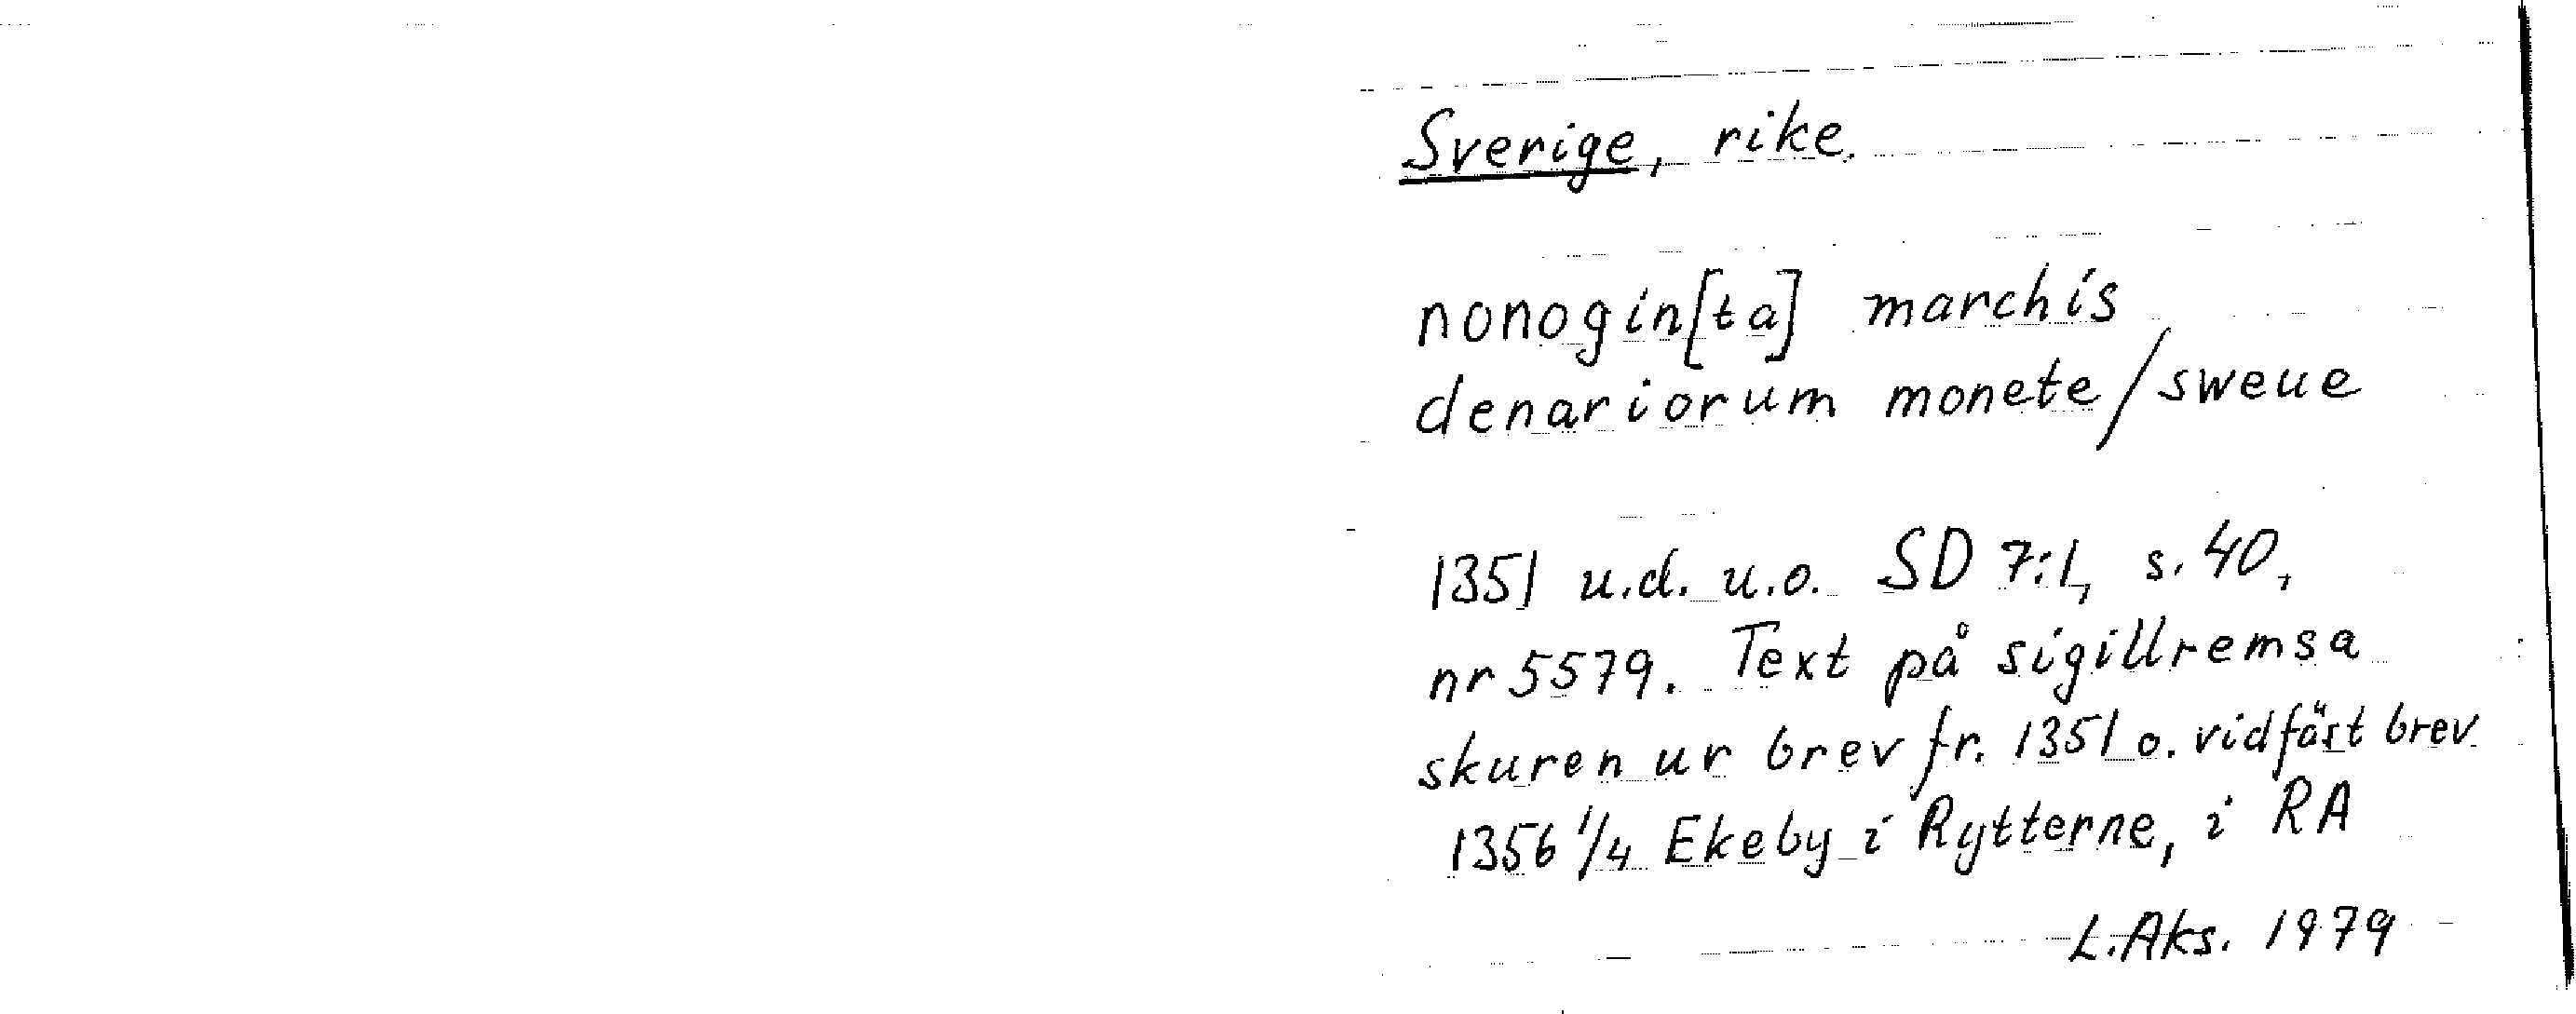 Sverige, rike.
nonogin[ta] marchis
denariorum monete/sweue
1351 u.d. u.o. SD 7:1, s. 40,
nr 5579. Text på sigillremsa
skuren ur brev fr. 1351 o. vidfäst brev
1356 1/4 Ekeby i Rytterne, i RA
L.Aks. 1979